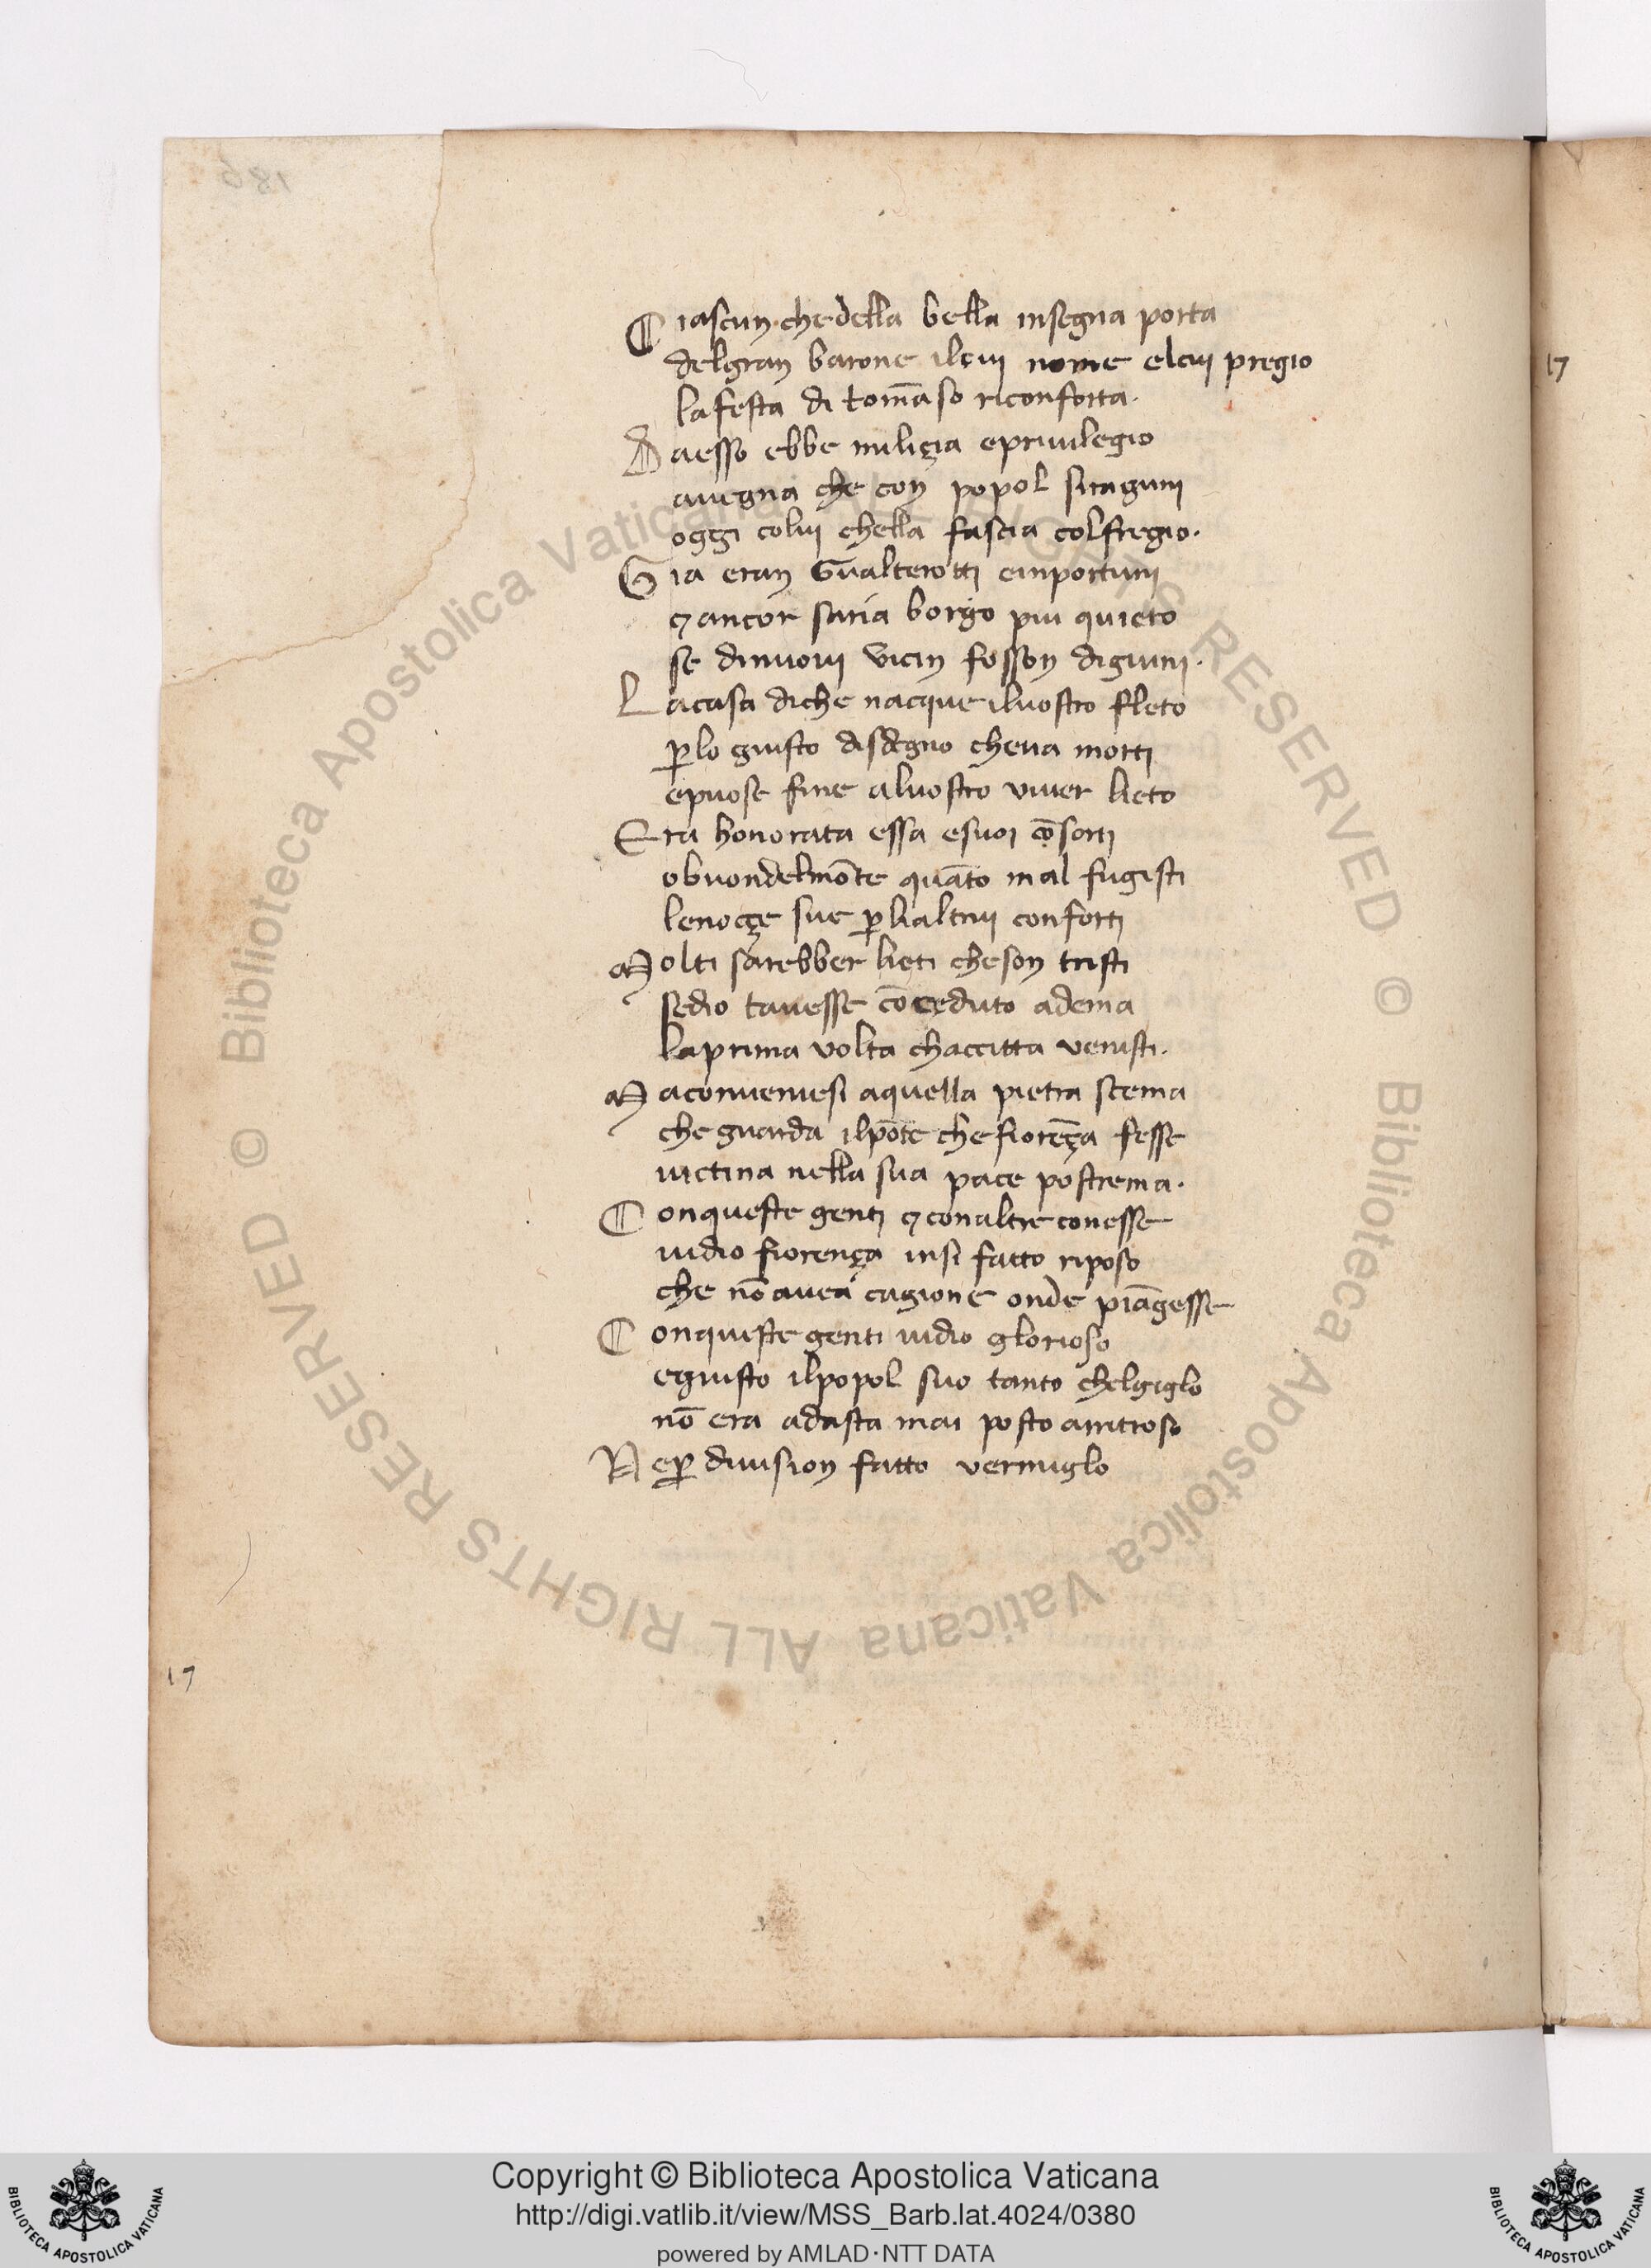 186
Ciascun·chedella bella insegna porta
delgran barone ilcui nome elcui pregio
lafesta di tom̄aso riconforta·
Daesso ebbe miliçia epriuilegio
auegna che con popol siraguni
oggi colui chella fascia colfregio·
Gia eran Gualterotti einportuni
⁊ancor saria borgo piu quieto
se dinuoui vicin fosson digiuni·
Lacasa diche nacque iluostro fleto
ꝑlo giusto disdegno cheua morti
epuose fine aluostro viuer lieto
Era honorata essa esuoi cōsorti
obuondelmōte quāto mal fugisti
lenoçe sue ꝑlialtrui conforti
Molti sarebber lieti cheson tristi
sedio tauesse cōceduto adema
laprima volta chaccitta venisti·
Maconueniesi aquella pietra scema
che guarda ilpōte che fiorēça fesse
uictima nella sua pace postrema·
Conqueste genti ⁊conaltre conesse
uidio fiorença insi fatto riposo
che nō auea cagione onde piāgesse
Conqueste genti uidio glorioso
egiusto ilpopol suo tanto chelgiglo
nō era adasta mai posto aritroso
Neꝑ diuision fatto vermiglo
17
17
© Biblioteca Apostolica Vaticana ALL RIGHTS RESERVED © Biblioteca Apostolica Vaticana ALL RIGHTS RESERVED
Copyright © Biblioteca Apostolica Vaticana
http://digi.vatlib.it/view/MSS_Barb.lat.4024/0380
powered by AMLAD·NTT DATA
BIBLIOTECA APOSTOLICA VATICANA
BIBLIOTECA APOSTOLICA VATICANA